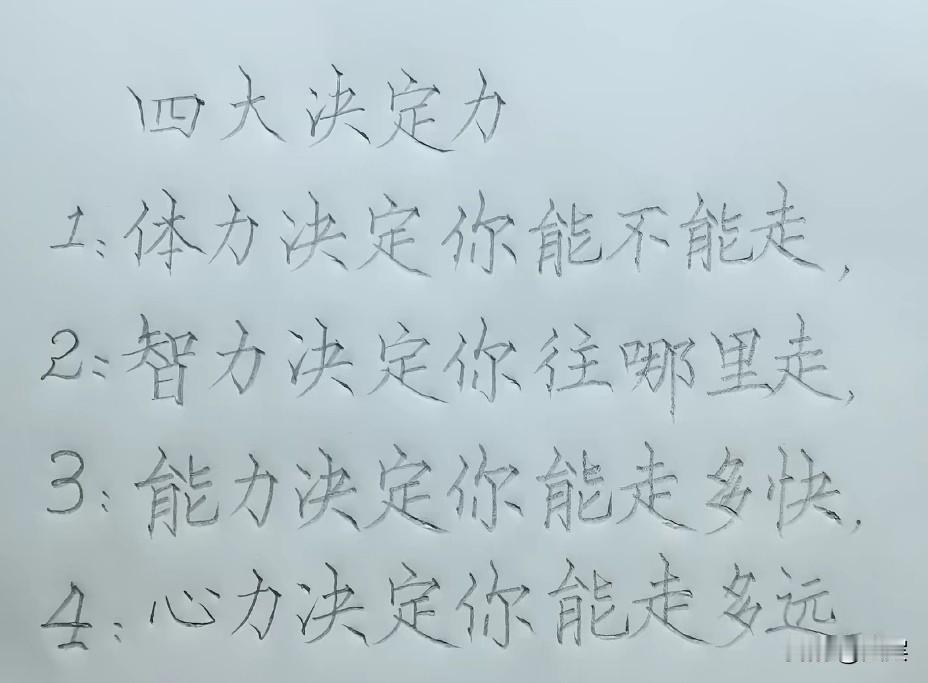 四大决定力
1:体力决定你能不能走,
2:智力决定你往哪里走,
3:能力决定你能走多快,
4:心力决定你能走多远